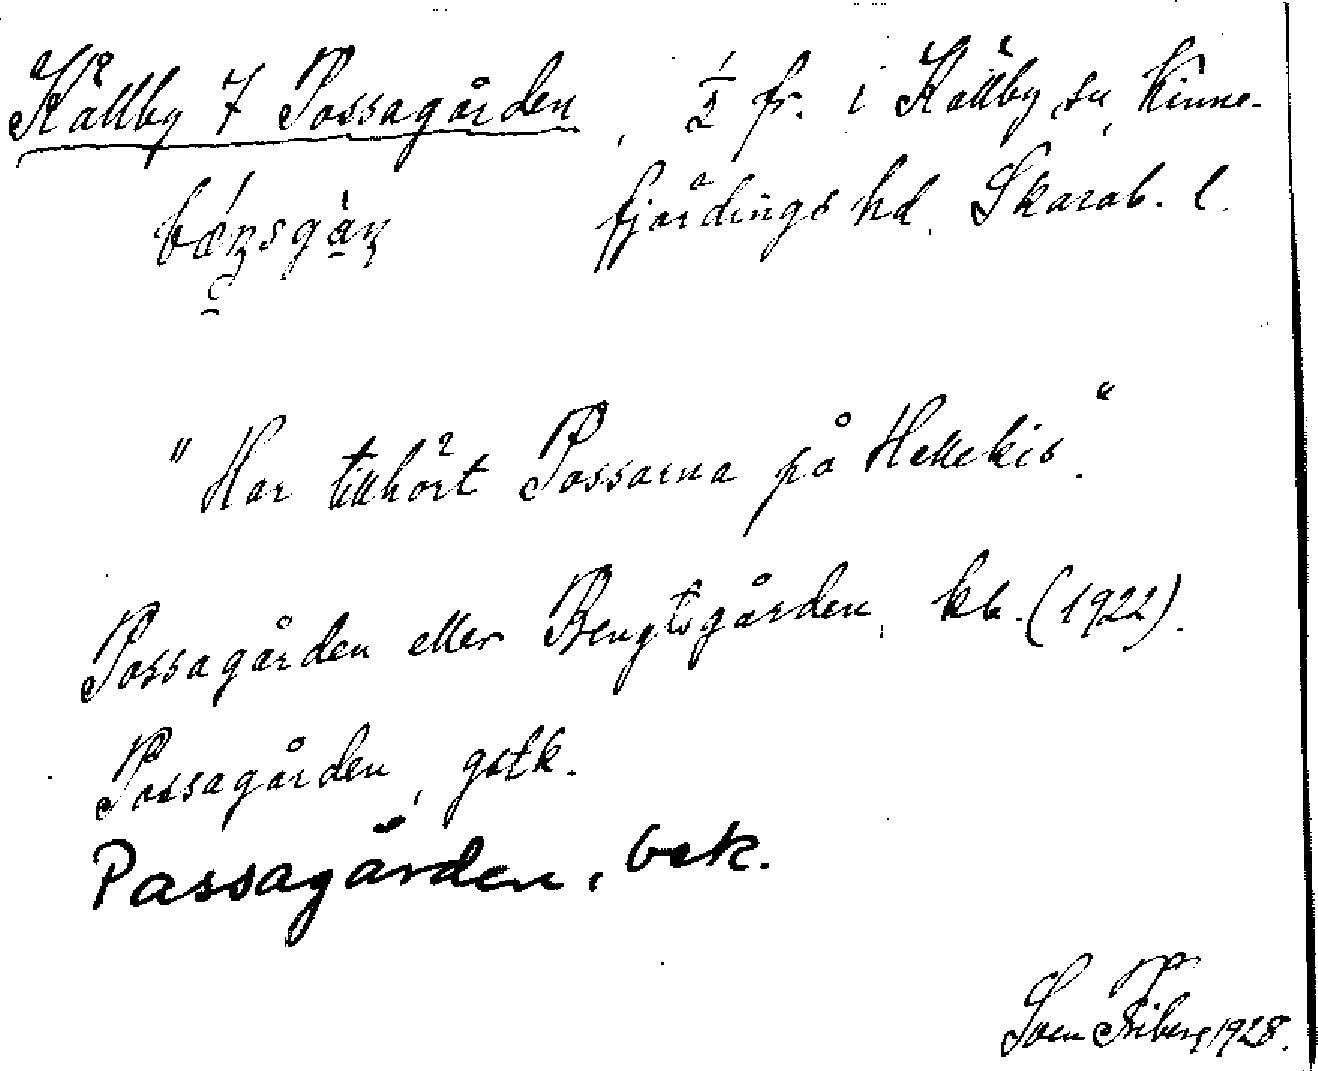 Källby 7 Possagården, 1/2 fr. i Källby sn, Kinne-
fjärdings hd, Skarab. l.
"Har tillhört Possarna på Hellekis."
Possagården eller Bengtsgården, kb. (1922).
Possagården, gstk.
Passagården, bek.
Sven Friberg 1928.